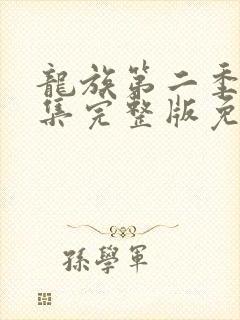 龍族第二季
集完整版免
孫學軍